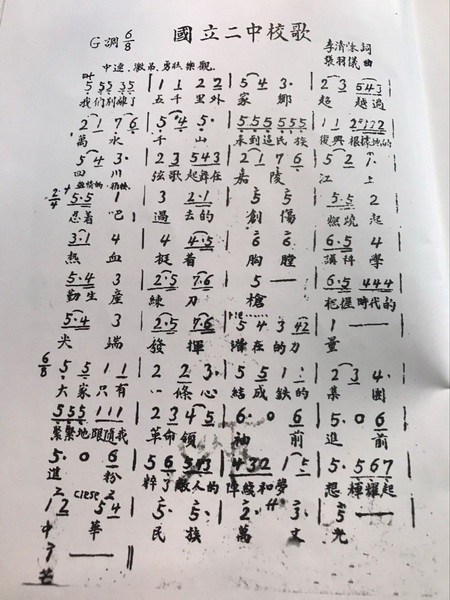 國立二中校歌
G調 6/8
李清悚 詞
張羽儀 曲
中速、激昂、勇壯、樂觀
5 5 5 3 5 | 1 1 2 2 | 5 4 3· | 2 3 5 4 3
我們別離了 五千里外 家鄉 超越過
2 1 7 6 | 5 4 5· | 5 5 5 5 5 5 | 1 1 2 1 7 2
萬水 千山 來到這民族 復興根據地的
5 4 3· | 2 3 5 4 3 | 2 1 7 6 | 5 2 1·
四川 弦歌起舞在 嘉陵 江上
2/4 5·5 1 | 3 2·1 | 5 5 | 5·5 2
忍着吧 過去的 創傷 燃燒起
3·1 4 | 4 4·5 | 6 6 | 6·5 4
熱血 挺着 胸膛 講科學
5·4 3 | 2·5 7·6 | 5 — | 6·5 4 4 4
勤生產 練刀 槍 把握時代的
5·4 3 | 2·5 7·6 | 5 4 3 4 2 | 1 —
尖端 發揮 潛在的力 量
6/8 5 5 1 1 | 2 2 3· | 5 5 1 1 | 2 3 4·
大家只有 一條心 結成鐵的 集團
5 5 5 1 1 1 | 2 3 4 5 | 6· 0 6 | 5· 0 4
緊緊地跟隨我 革命領 袖 前 進 前
5· 0 6 | 5 6 5 4 3 | 4 3 2 1 5 | 5· 5 6 7
進 粉 粹了敵人的 陣綫和夢 想 輝耀起
1 2 5 4 | 5· 5· | 2· 3· | 5
中華 民族 萬丈 光
1 — ‖
芒